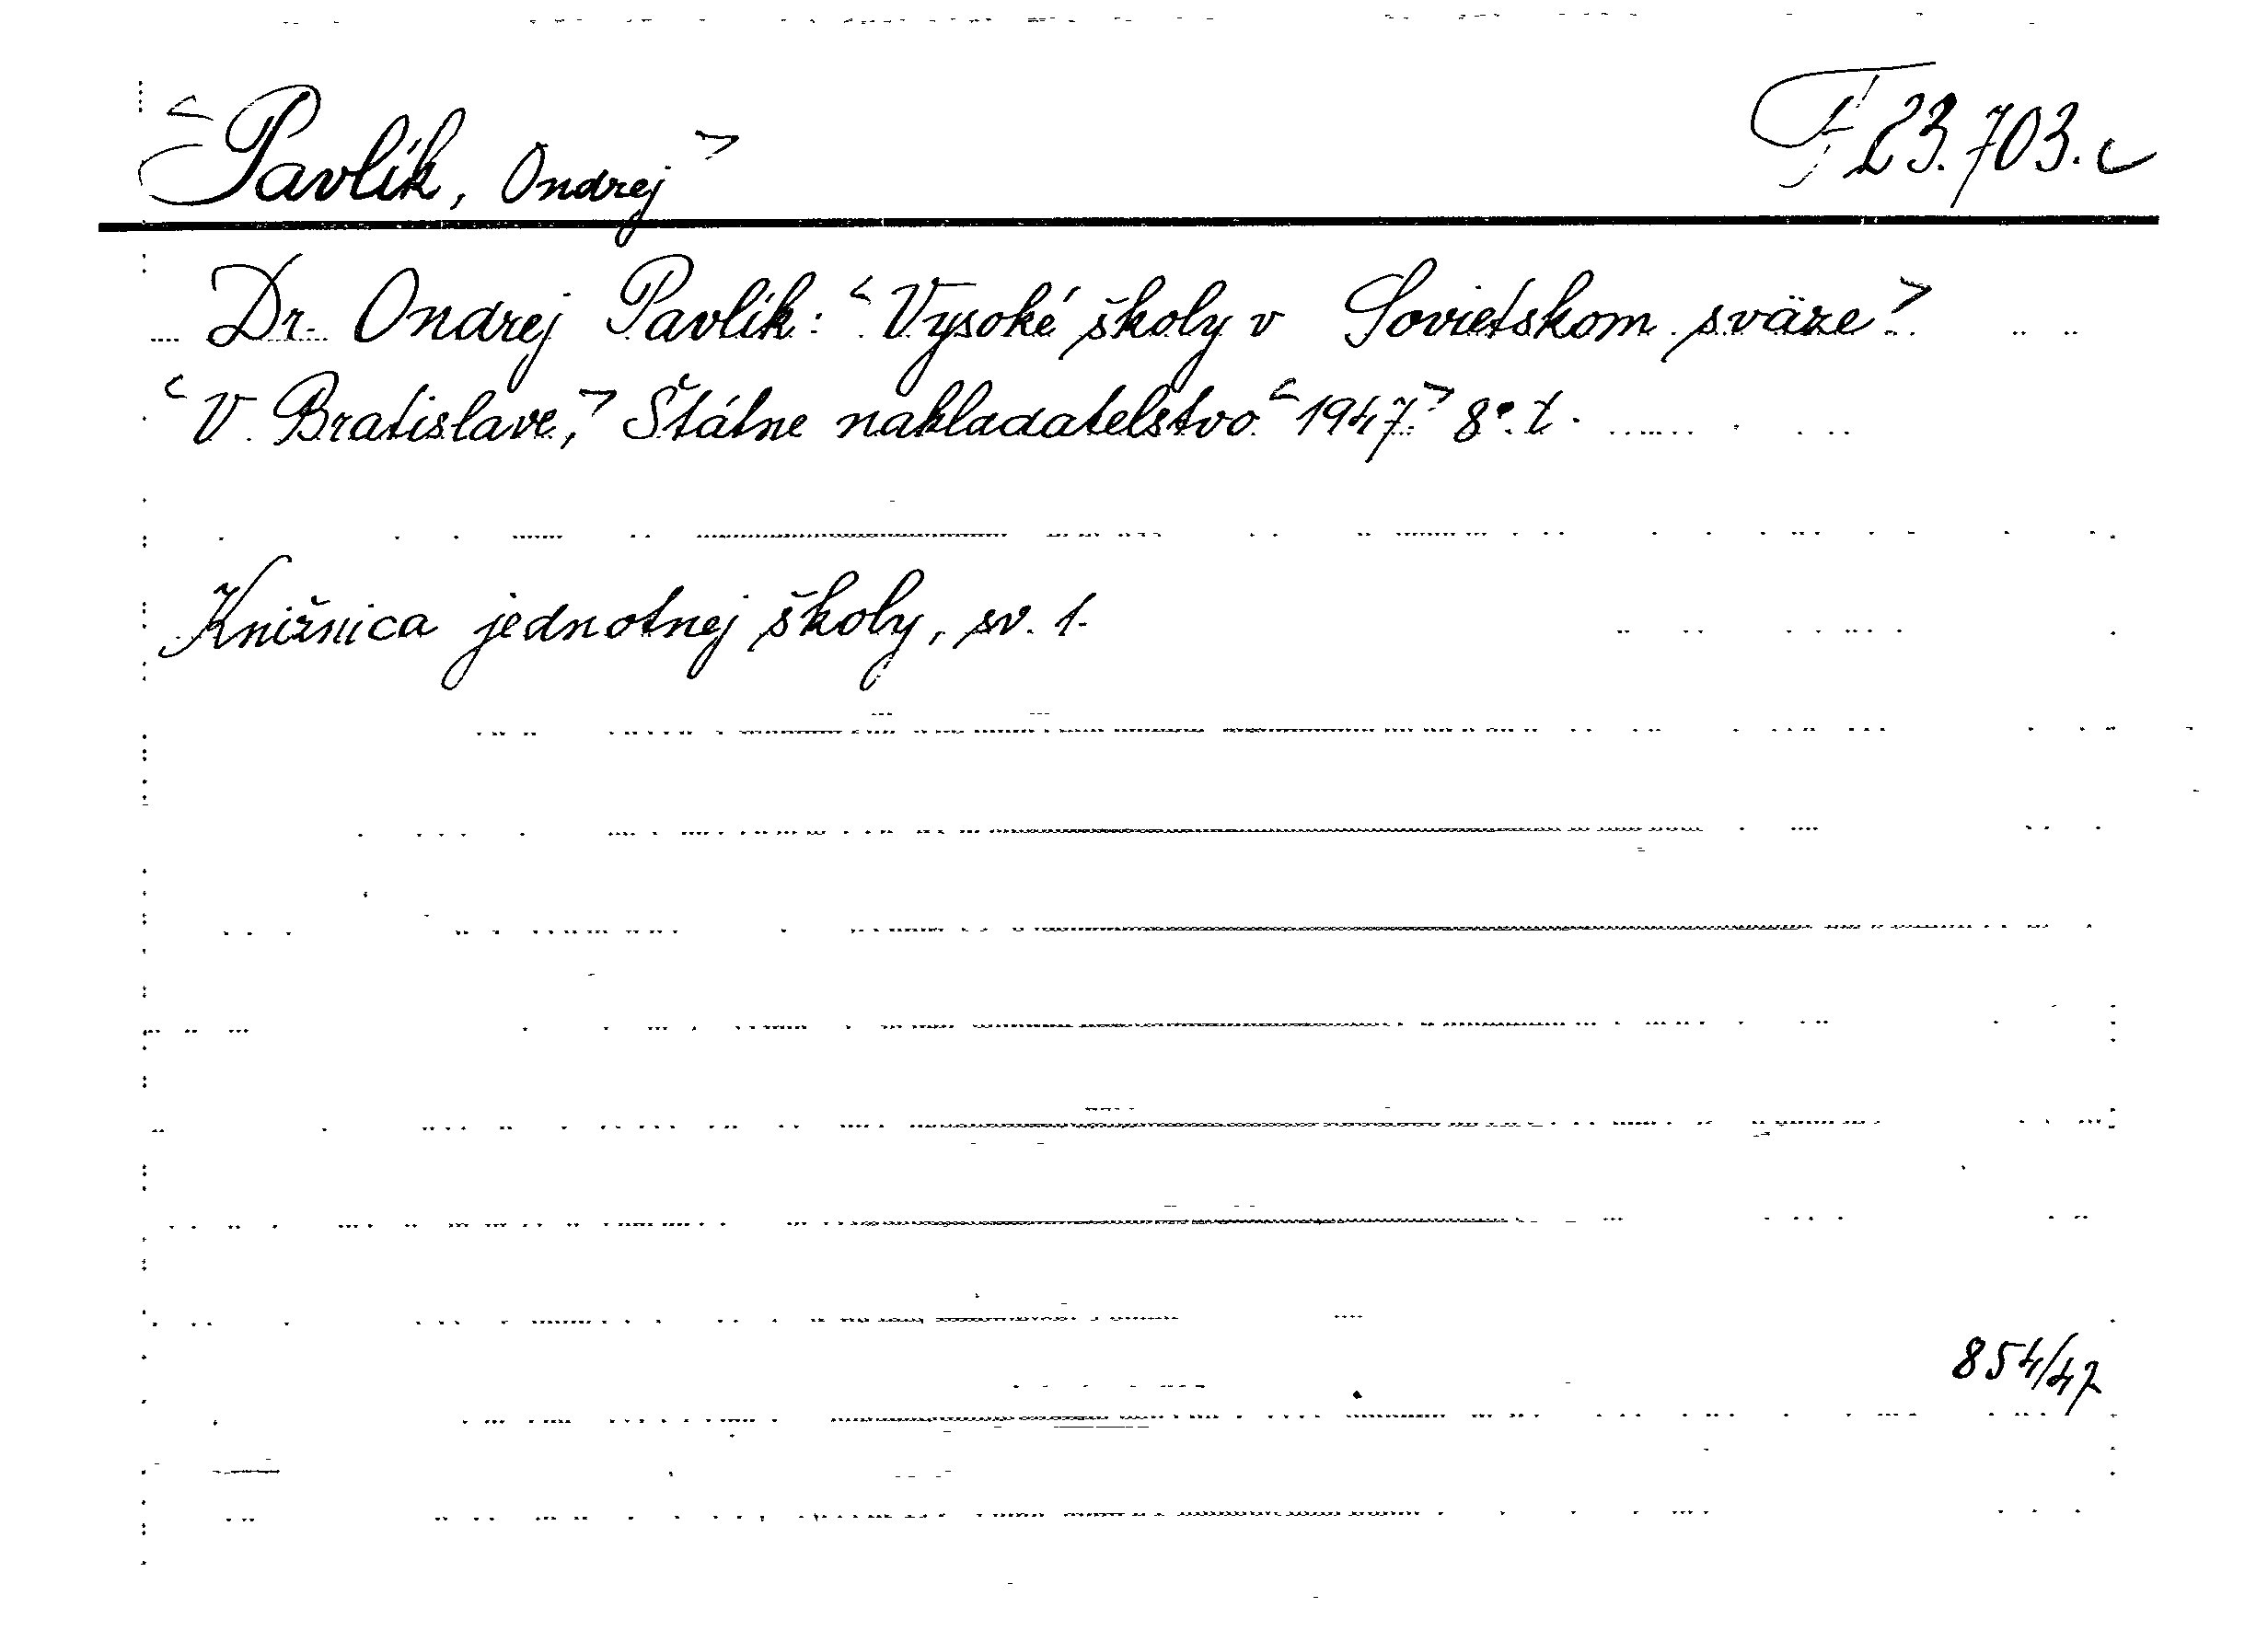 <Pavlík, Ondrej> F 23.703.c
Dr. Ondrej Pavlík: <Vysoké školy v Sovietskom sväze>.
<V Bratislave,> Štátne nakladatelstvo <1947.> 8°. t.
Knižnica jednotnej školy, sv. 1.
854/47